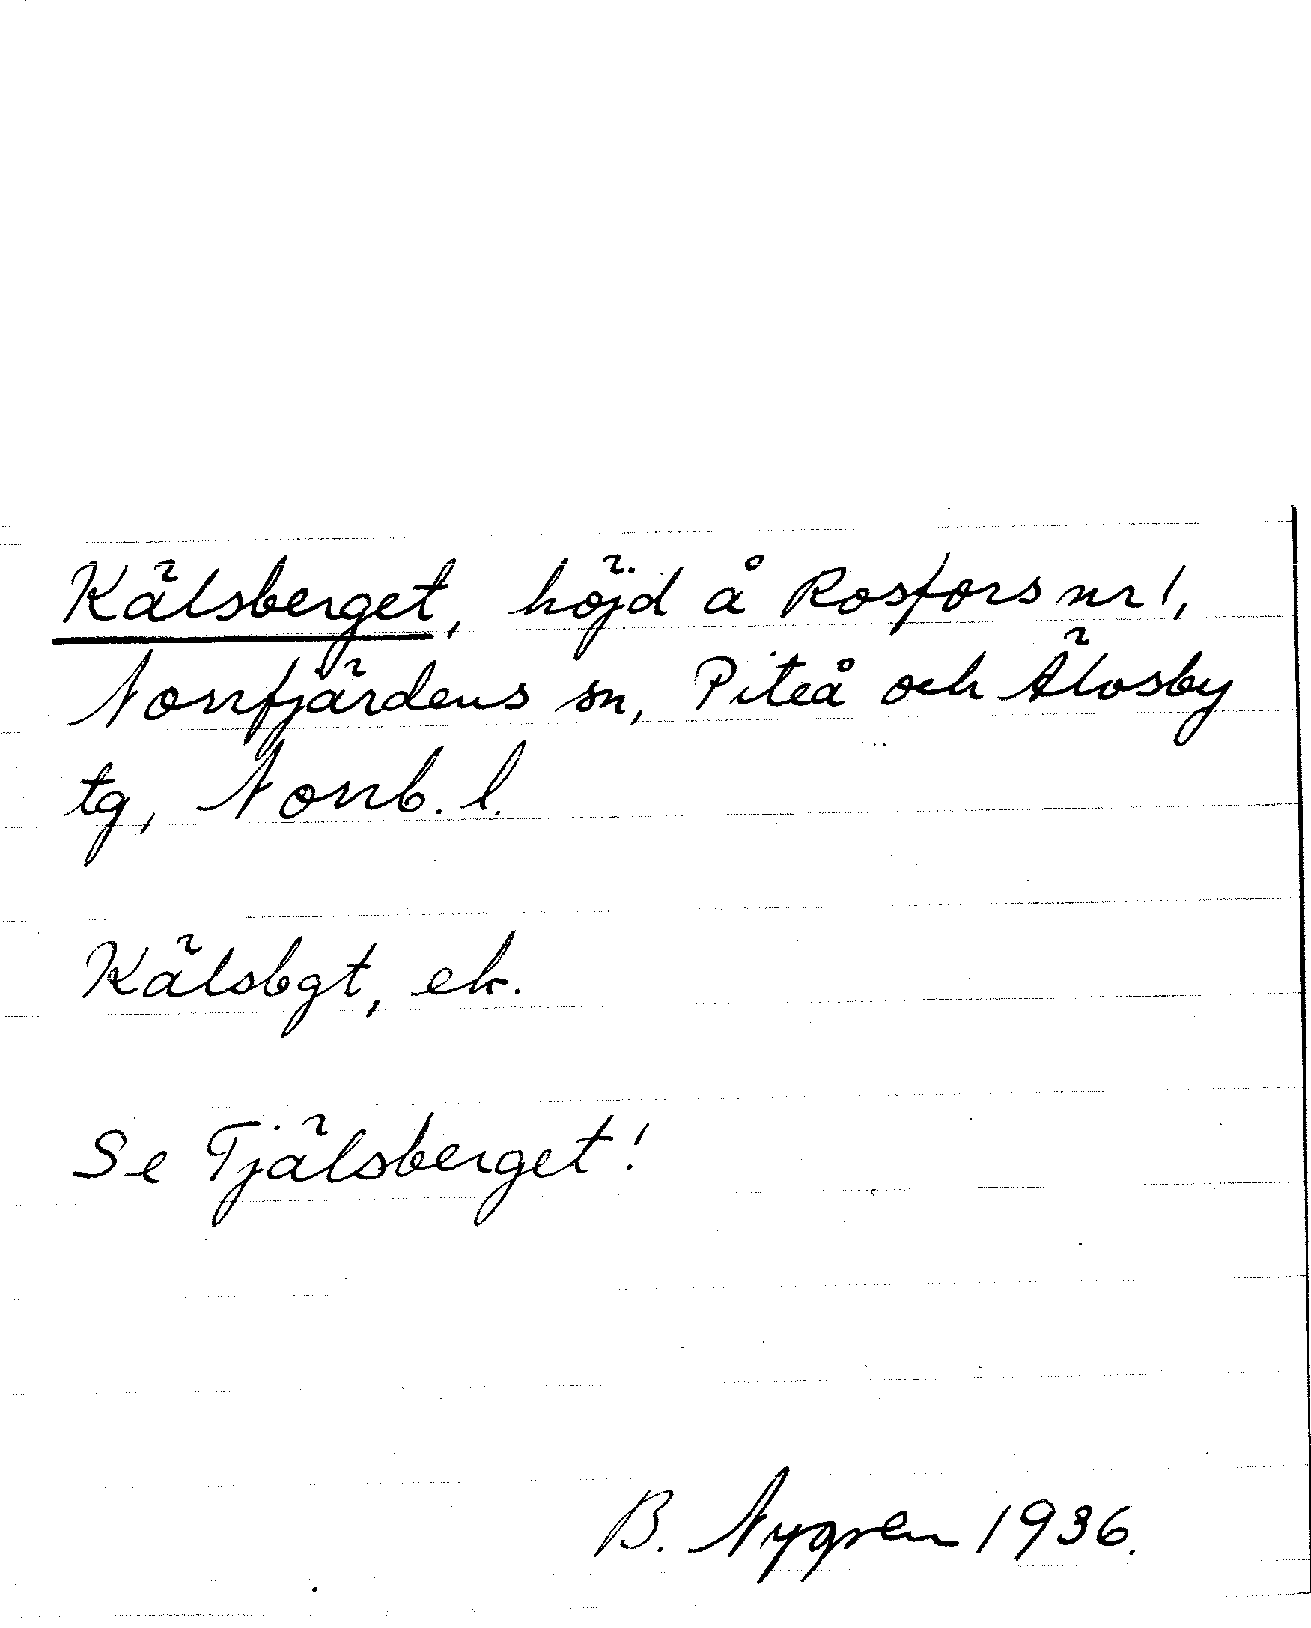 Kälsberget, höjd å Rosfors nr 1,
Norrfjärdens sn, Piteå och Älvsby
tg, Norrb. l.
Kälsbgt, ek.
Se Tjälsberget!
B. Nygren 1936.